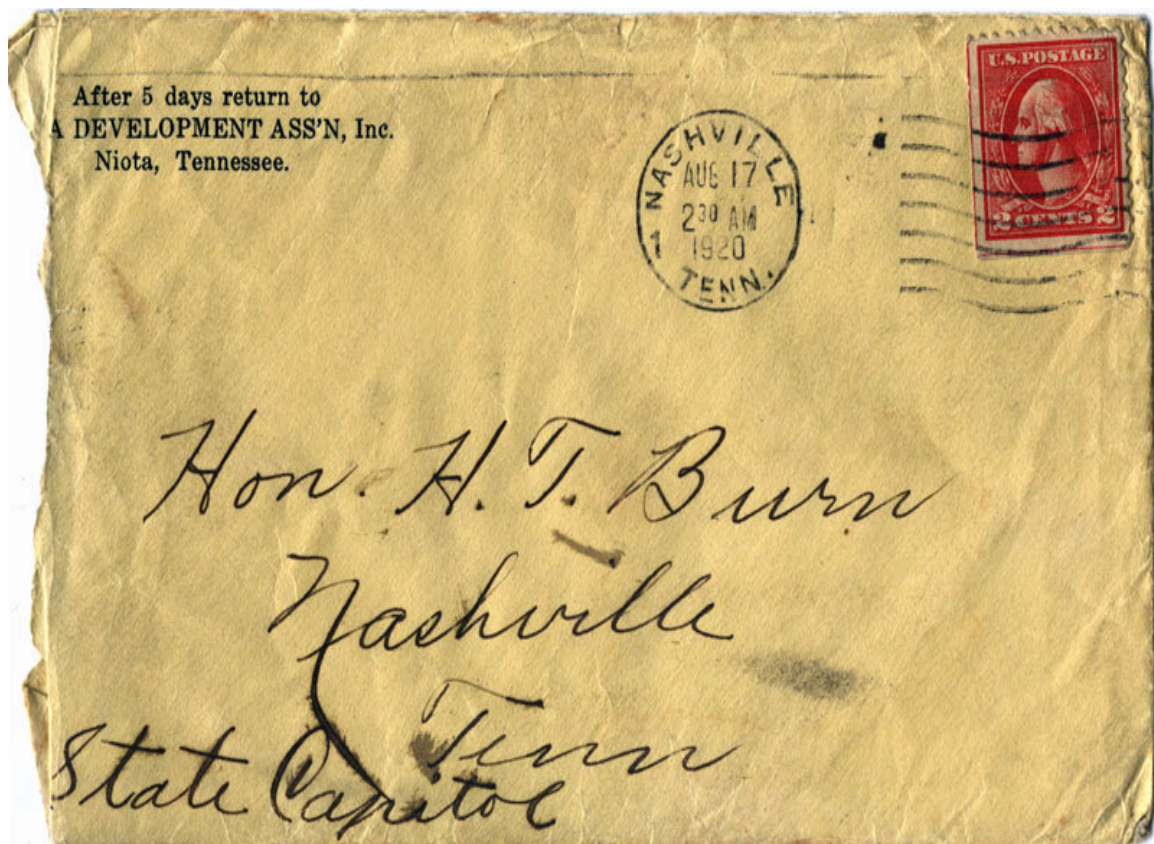 After 5 days return to
A DEVELOPMENT ASS'N, Inc.
Niota, Tennessee.
NASHVILLE
AUG 17
2³⁰ AM
1920
1
TENN.
U.S. POSTAGE
2 CENTS 2
Hon. H. T. Burn
Nashville
Tenn
State Capitol